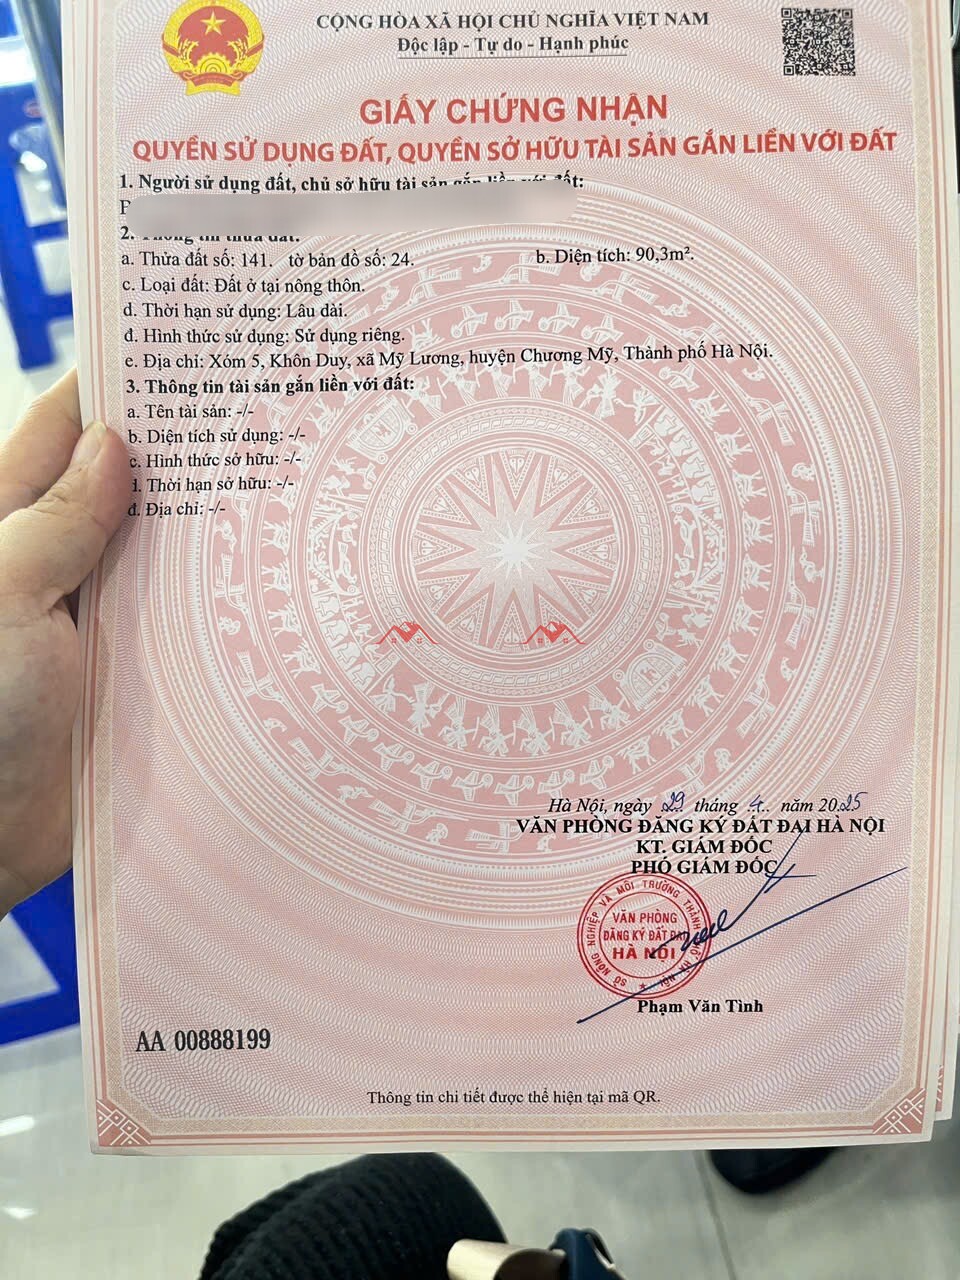 CỘNG HÒA XÃ HỘI CHỦ NGHĨA VIỆT NAM
Độc lập - Tự do - Hạnh phúc
GIẤY CHỨNG NHẬN
QUYỀN SỬ DỤNG ĐẤT, QUYỀN SỞ HỮU TÀI SẢN GẮN LIỀN VỚI ĐẤT
1. Người sử dụng đất, chủ sở hữu tài sản gắn liền với đất:
2. Thông tin thửa đất:
a. Thửa đất số: 141. tờ bản đồ số: 24. b. Diện tích: 90,3m².
c. Loại đất: Đất ở tại nông thôn.
d. Thời hạn sử dụng: Lâu dài.
đ. Hình thức sử dụng: Sử dụng riêng.
e. Địa chỉ: Xóm 5, Khôn Duy, xã Mỹ Lương, huyện Chương Mỹ, Thành phố Hà Nội.
3. Thông tin tài sản gắn liền với đất:
a. Tên tài sản: -/-
b. Diện tích sử dụng: -/-
c. Hình thức sở hữu: -/-
d. Thời hạn sở hữu: -/-
đ. Địa chỉ: -/-
Hà Nội, ngày 29 tháng 4 năm 2025
VĂN PHÒNG ĐĂNG KÝ ĐẤT ĐAI HÀ NỘI
KT. GIÁM ĐỐC
PHÓ GIÁM ĐỐC
SỞ NÔNG NGHIỆP VÀ MÔI TRƯỜNG THÀNH PHỐ HÀ NỘI
VĂN PHÒNG
ĐĂNG KÝ ĐẤT ĐAI
HÀ NỘI
Phạm Văn Tình
AA 00888199
Thông tin chi tiết được thể hiện tại mã QR.